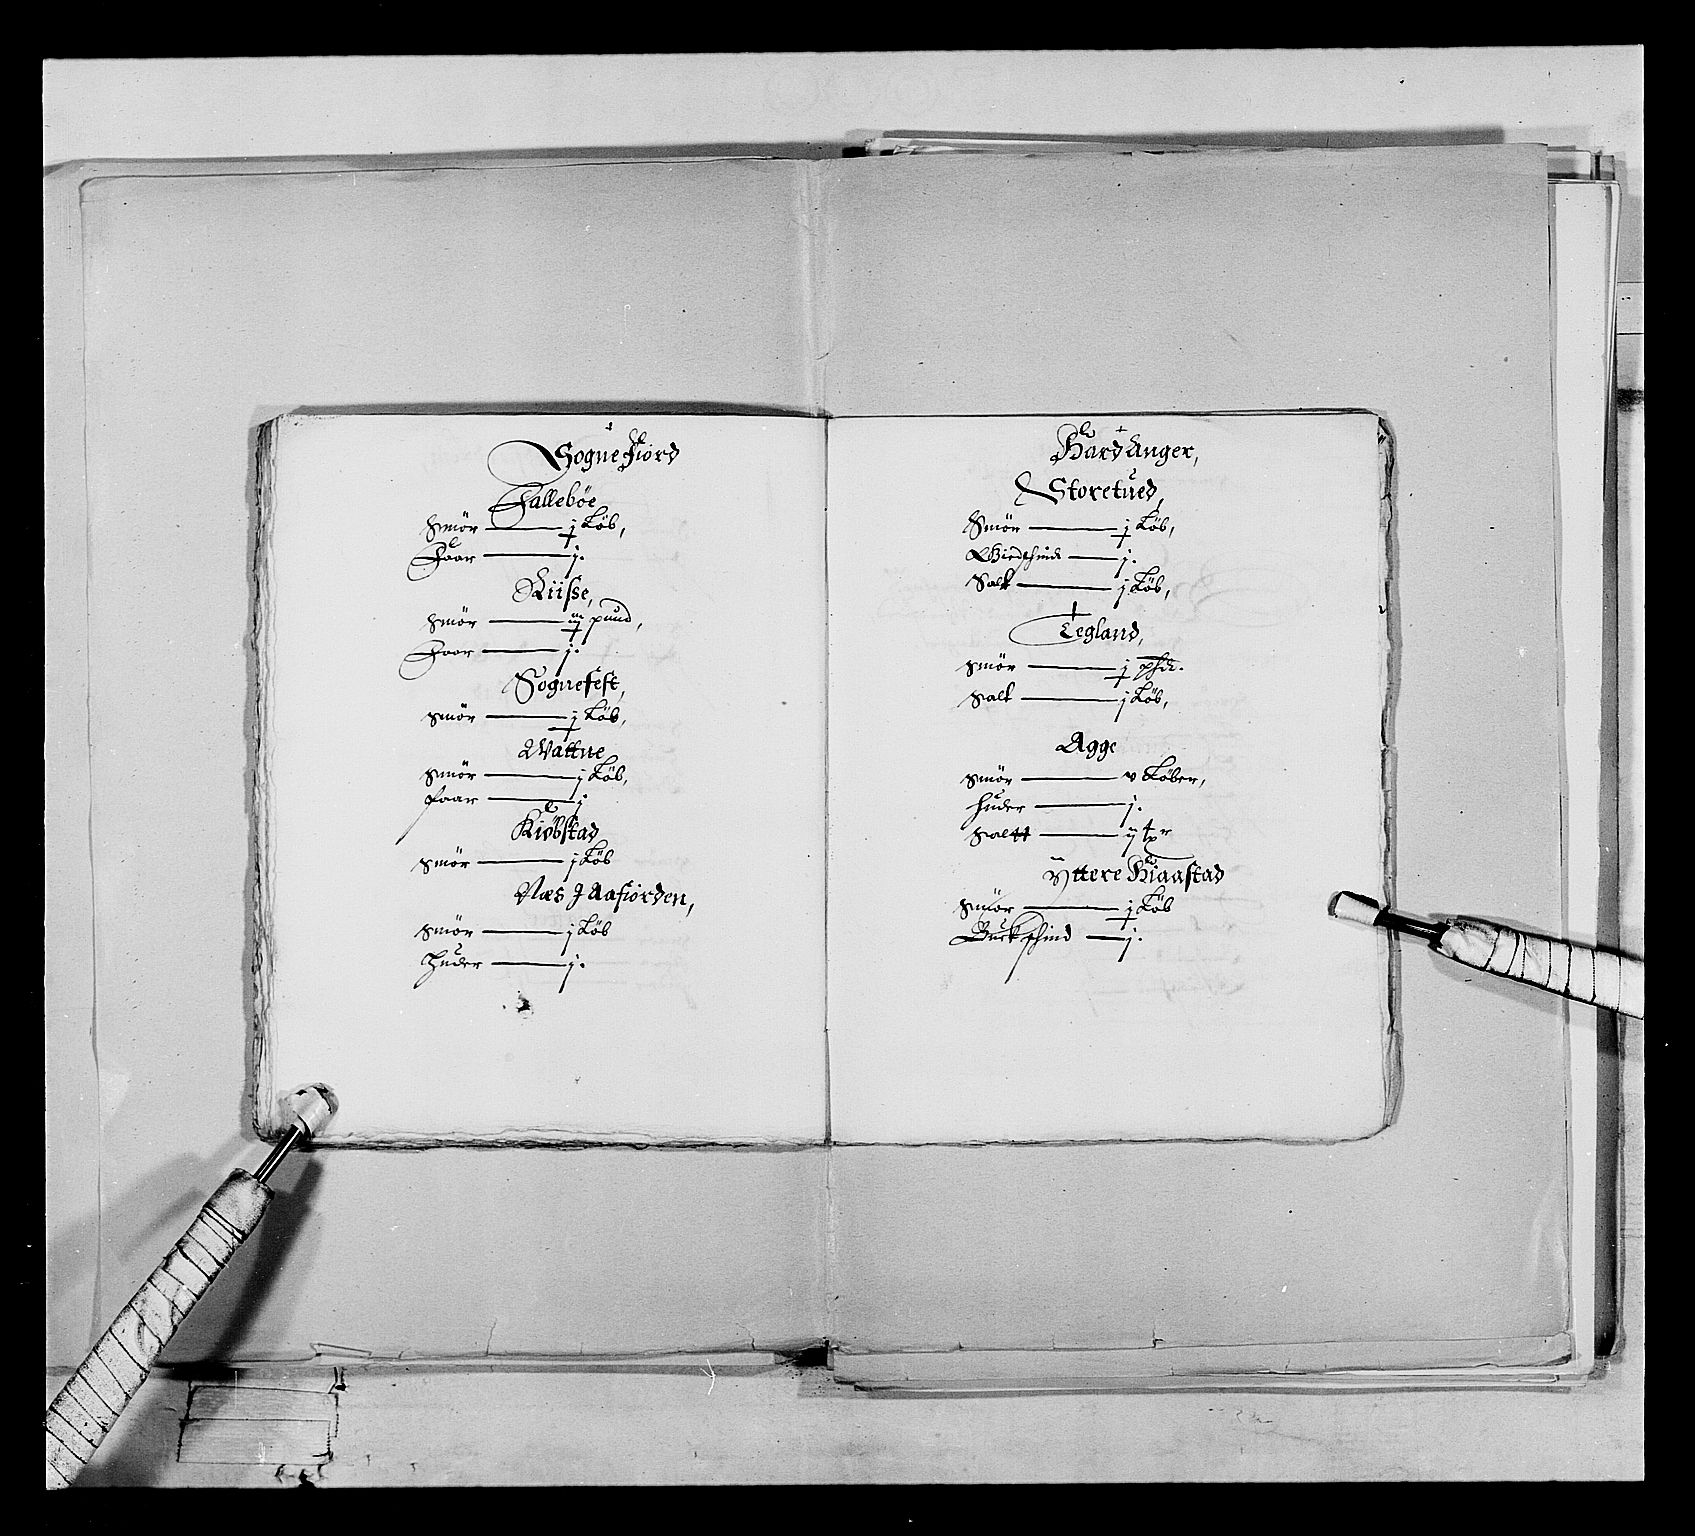 Sogne Fiord
Fallebøe
Smör j Løb,
Faar j.
Riisse,
Smör pund,
Faar j.
Sognefest,
Smör j Løb,
Wattne
Smör j Løb,
faar j
Kiøbstad
Smör j Løb
Næs J Aafiorden,
Smör j Løb
Huder j.
Hard Anger,
Storetued,
Smör j Løb,
Giedschind j.
Salt j Løb,
Tegland,
Smör j
Salt j Løb,
Agge
Smör v Løber,
Huder j.
Saltt ij
Yttere Kiaastad
Smör j Løb
Buckschind j.